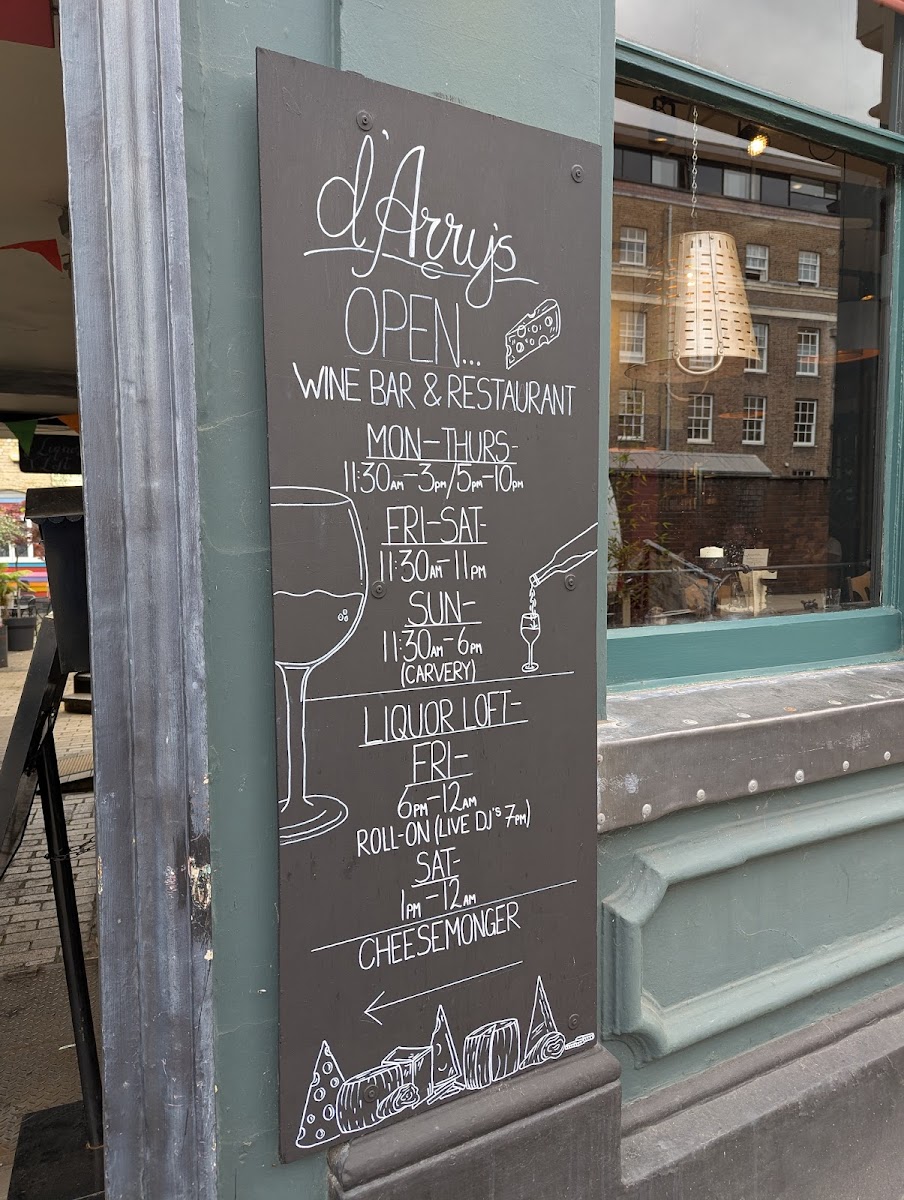 d'Arry's
OPEN...
WINE BAR & RESTAURANT
MON-THURS-
11:30AM-3PM/5PM-10PM
FRI-SAT-
11:30AM-11PM
SUN-
11:30AM-6PM
(CARVERY)
LIQUOR LOFT-
FRI-
6PM-12AM
ROLL-ON (LIVE DJ'S 7PM)
SAT-
1PM-12AM
CHEESEMONGER